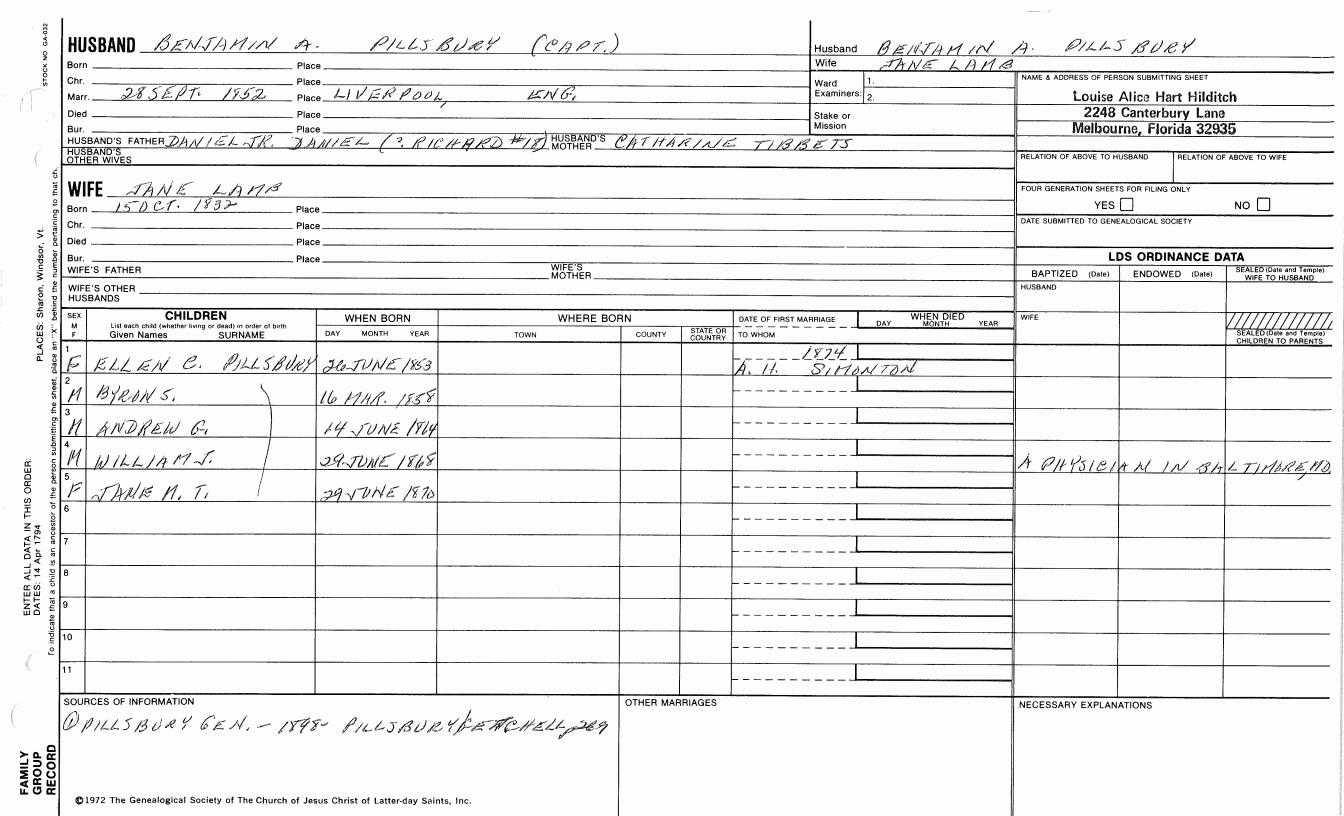 STOCK NO GA-032
HUSBAND BENJAMIN A. PILLSBURY (CAPT.)
Born Place
Chr. Place
Marr. 28 SEPT. 1852 Place LIVERPOOL, ENG.
Died Place
Bur. Place
HUSBAND'S FATHER DANIEL JR. DANIEL (?. RICHARD #18) HUSBAND'S MOTHER CATHARINE TIBBETS
HUSBAND'S OTHER WIVES
Husband BENJAMIN A. PILLSBURY
Wife JANE LAMB
Ward Examiners: 1.
2.
Stake or Mission
NAME & ADDRESS OF PERSON SUBMITTING SHEET
Louise Alice Hart Hilditch
2248 Canterbury Lane
Melbourne, Florida 32935
RELATION OF ABOVE TO HUSBAND RELATION OF ABOVE TO WIFE
FOUR GENERATION SHEETS FOR FILING ONLY
YES NO
DATE SUBMITTED TO GENEALOGICAL SOCIETY
WIFE JANE LAMB
Born 15 OCT. 1832 Place
Chr. Place
Died Place
Bur. Place
WIFE'S FATHER WIFE'S MOTHER
WIFE'S OTHER HUSBANDS
LDS ORDINANCE DATA
BAPTIZED (Date) ENDOWED (Date) SEALED (Date and Temple) WIFE TO HUSBAND
HUSBAND
WIFE
SEALED (Date and Temple) CHILDREN TO PARENTS
SEX M F
CHILDREN
List each child (whether living or dead) in order of birth
Given Names SURNAME
WHEN BORN
DAY MONTH YEAR
WHERE BORN
TOWN COUNTY STATE OR COUNTRY
DATE OF FIRST MARRIAGE
TO WHOM
WHEN DIED
DAY MONTH YEAR
1 F ELLEN C. PILLSBURY 26 JUNE 1853 1874
A. H. SIMONTON
2 M BYRON S. 16 MAR. 1858
3 M ANDREW G. 14 JUNE 1864
4 M WILLIAM J. 29 JUNE 1868 A PHYSICIAN IN BALTIMORE, MD
5 F JANE M. T. 29 JUNE 1870
6
7
8
9
10
11
SOURCES OF INFORMATION
① PILLSBURY GEN. - 1898- PILLSBURY/GETCHELL, 289
OTHER MARRIAGES
NECESSARY EXPLANATIONS
©1972 The Genealogical Society of The Church of Jesus Christ of Latter-day Saints, Inc.
PLACES: Sharon, Windsor, Vt.
To indicate that a child is an ancestor of the person submitting the sheet, place an "X" behind the number pertaining to that ch.
ENTER ALL DATA IN THIS ORDER:
DATES: 14 Apr 1794
FAMILY GROUP RECORD